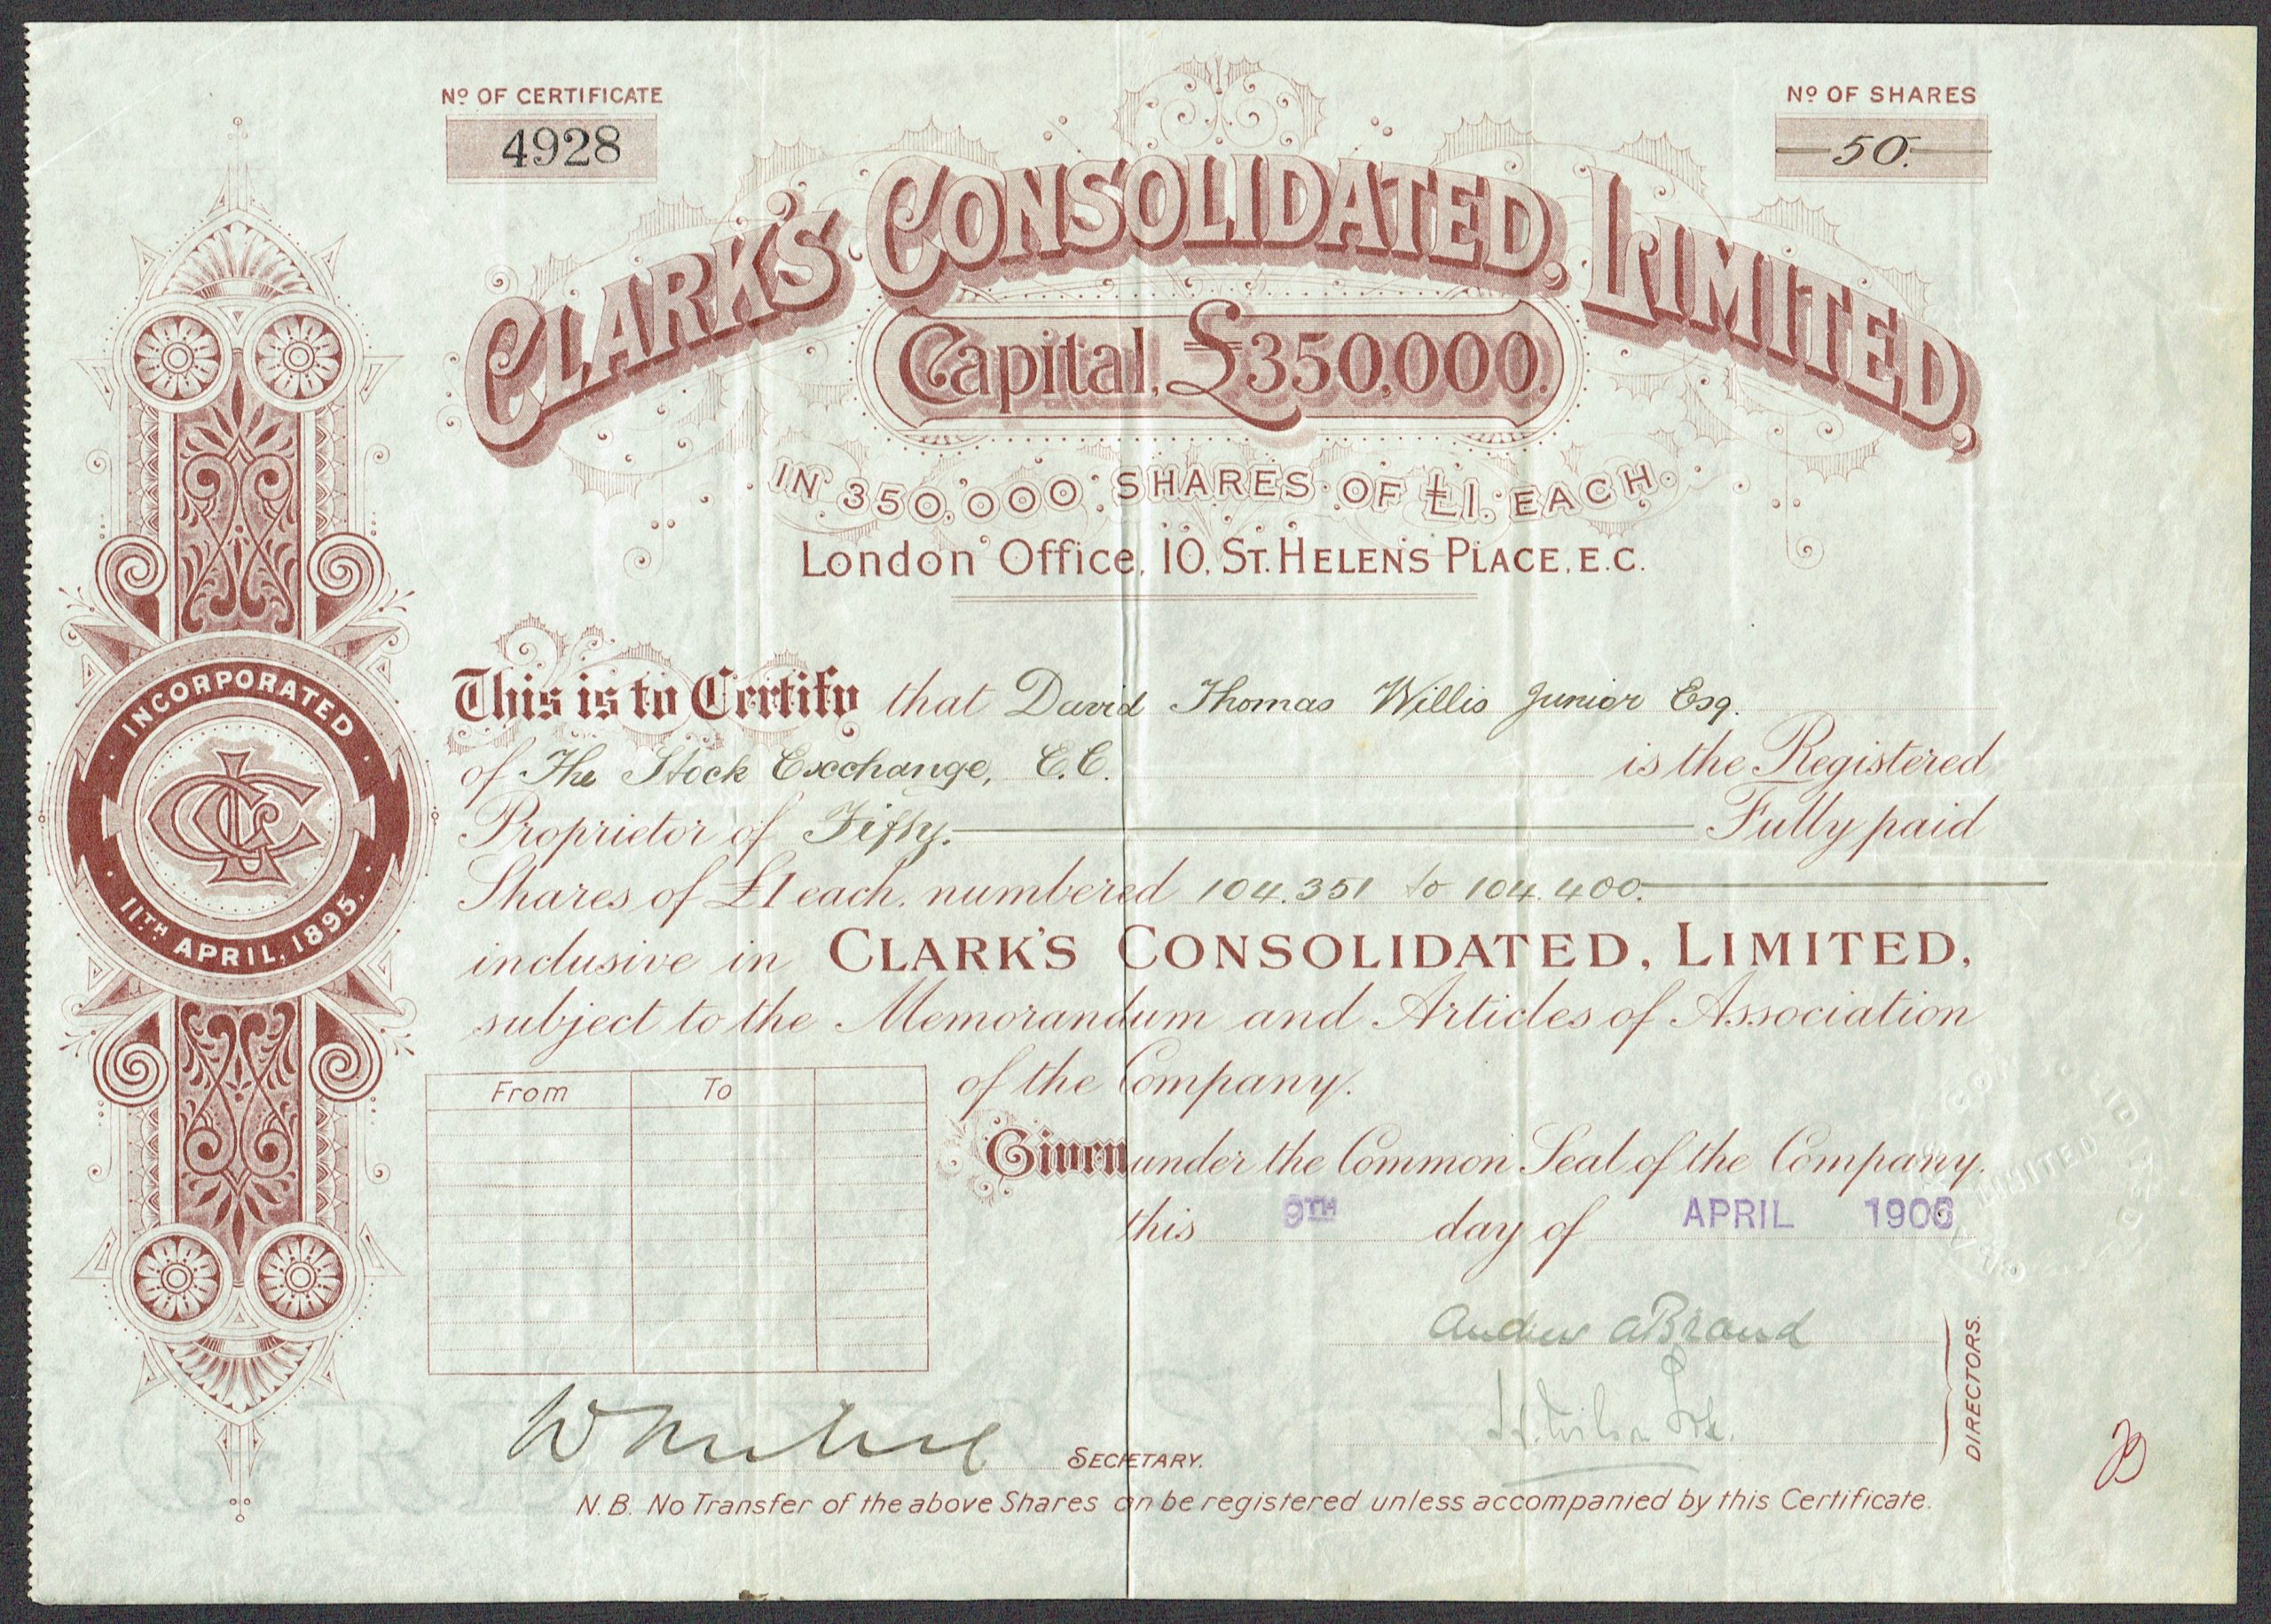 Nº OF CERTIFICATE
4928
Nº OF SHARES
50.
CLARK'S CONSOLIDATED, LIMITED,
Capital, £350,000.
IN 350,000 SHARES OF £1. EACH.
London Office, 10, ST. HELEN'S PLACE, E.C.
INCORPORATED
11TH APRIL, 1895.
This is to Certify that David Thomas Willis Junior Esq.
of The Stock Exchange, E.C. is the Registered
Proprietor of Fifty. Fully paid
Shares of £1 each, numbered 104.351 to 104.400.
inclusive in CLARK'S CONSOLIDATED, LIMITED,
subject to the Memorandum and Articles of Association
of the Company.
From To
Given under the Common Seal of the Company.
this 9TH day of APRIL 1906
Andrew A Brand
DIRECTORS.
SECRETARY.
N.B. No Transfer of the above Shares can be registered unless accompanied by this Certificate.